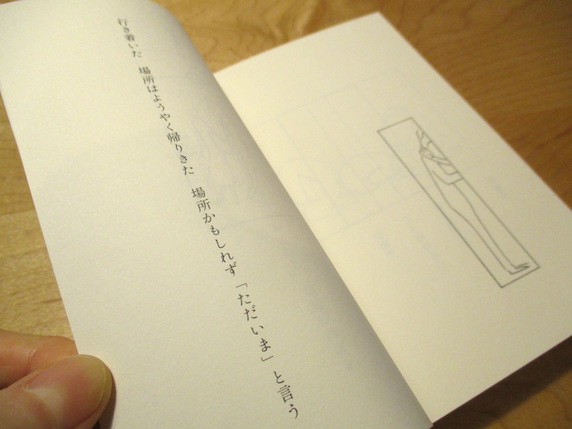 行き着いた　場所はようやく帰りきた　場所かもしれず「ただいま」と言う